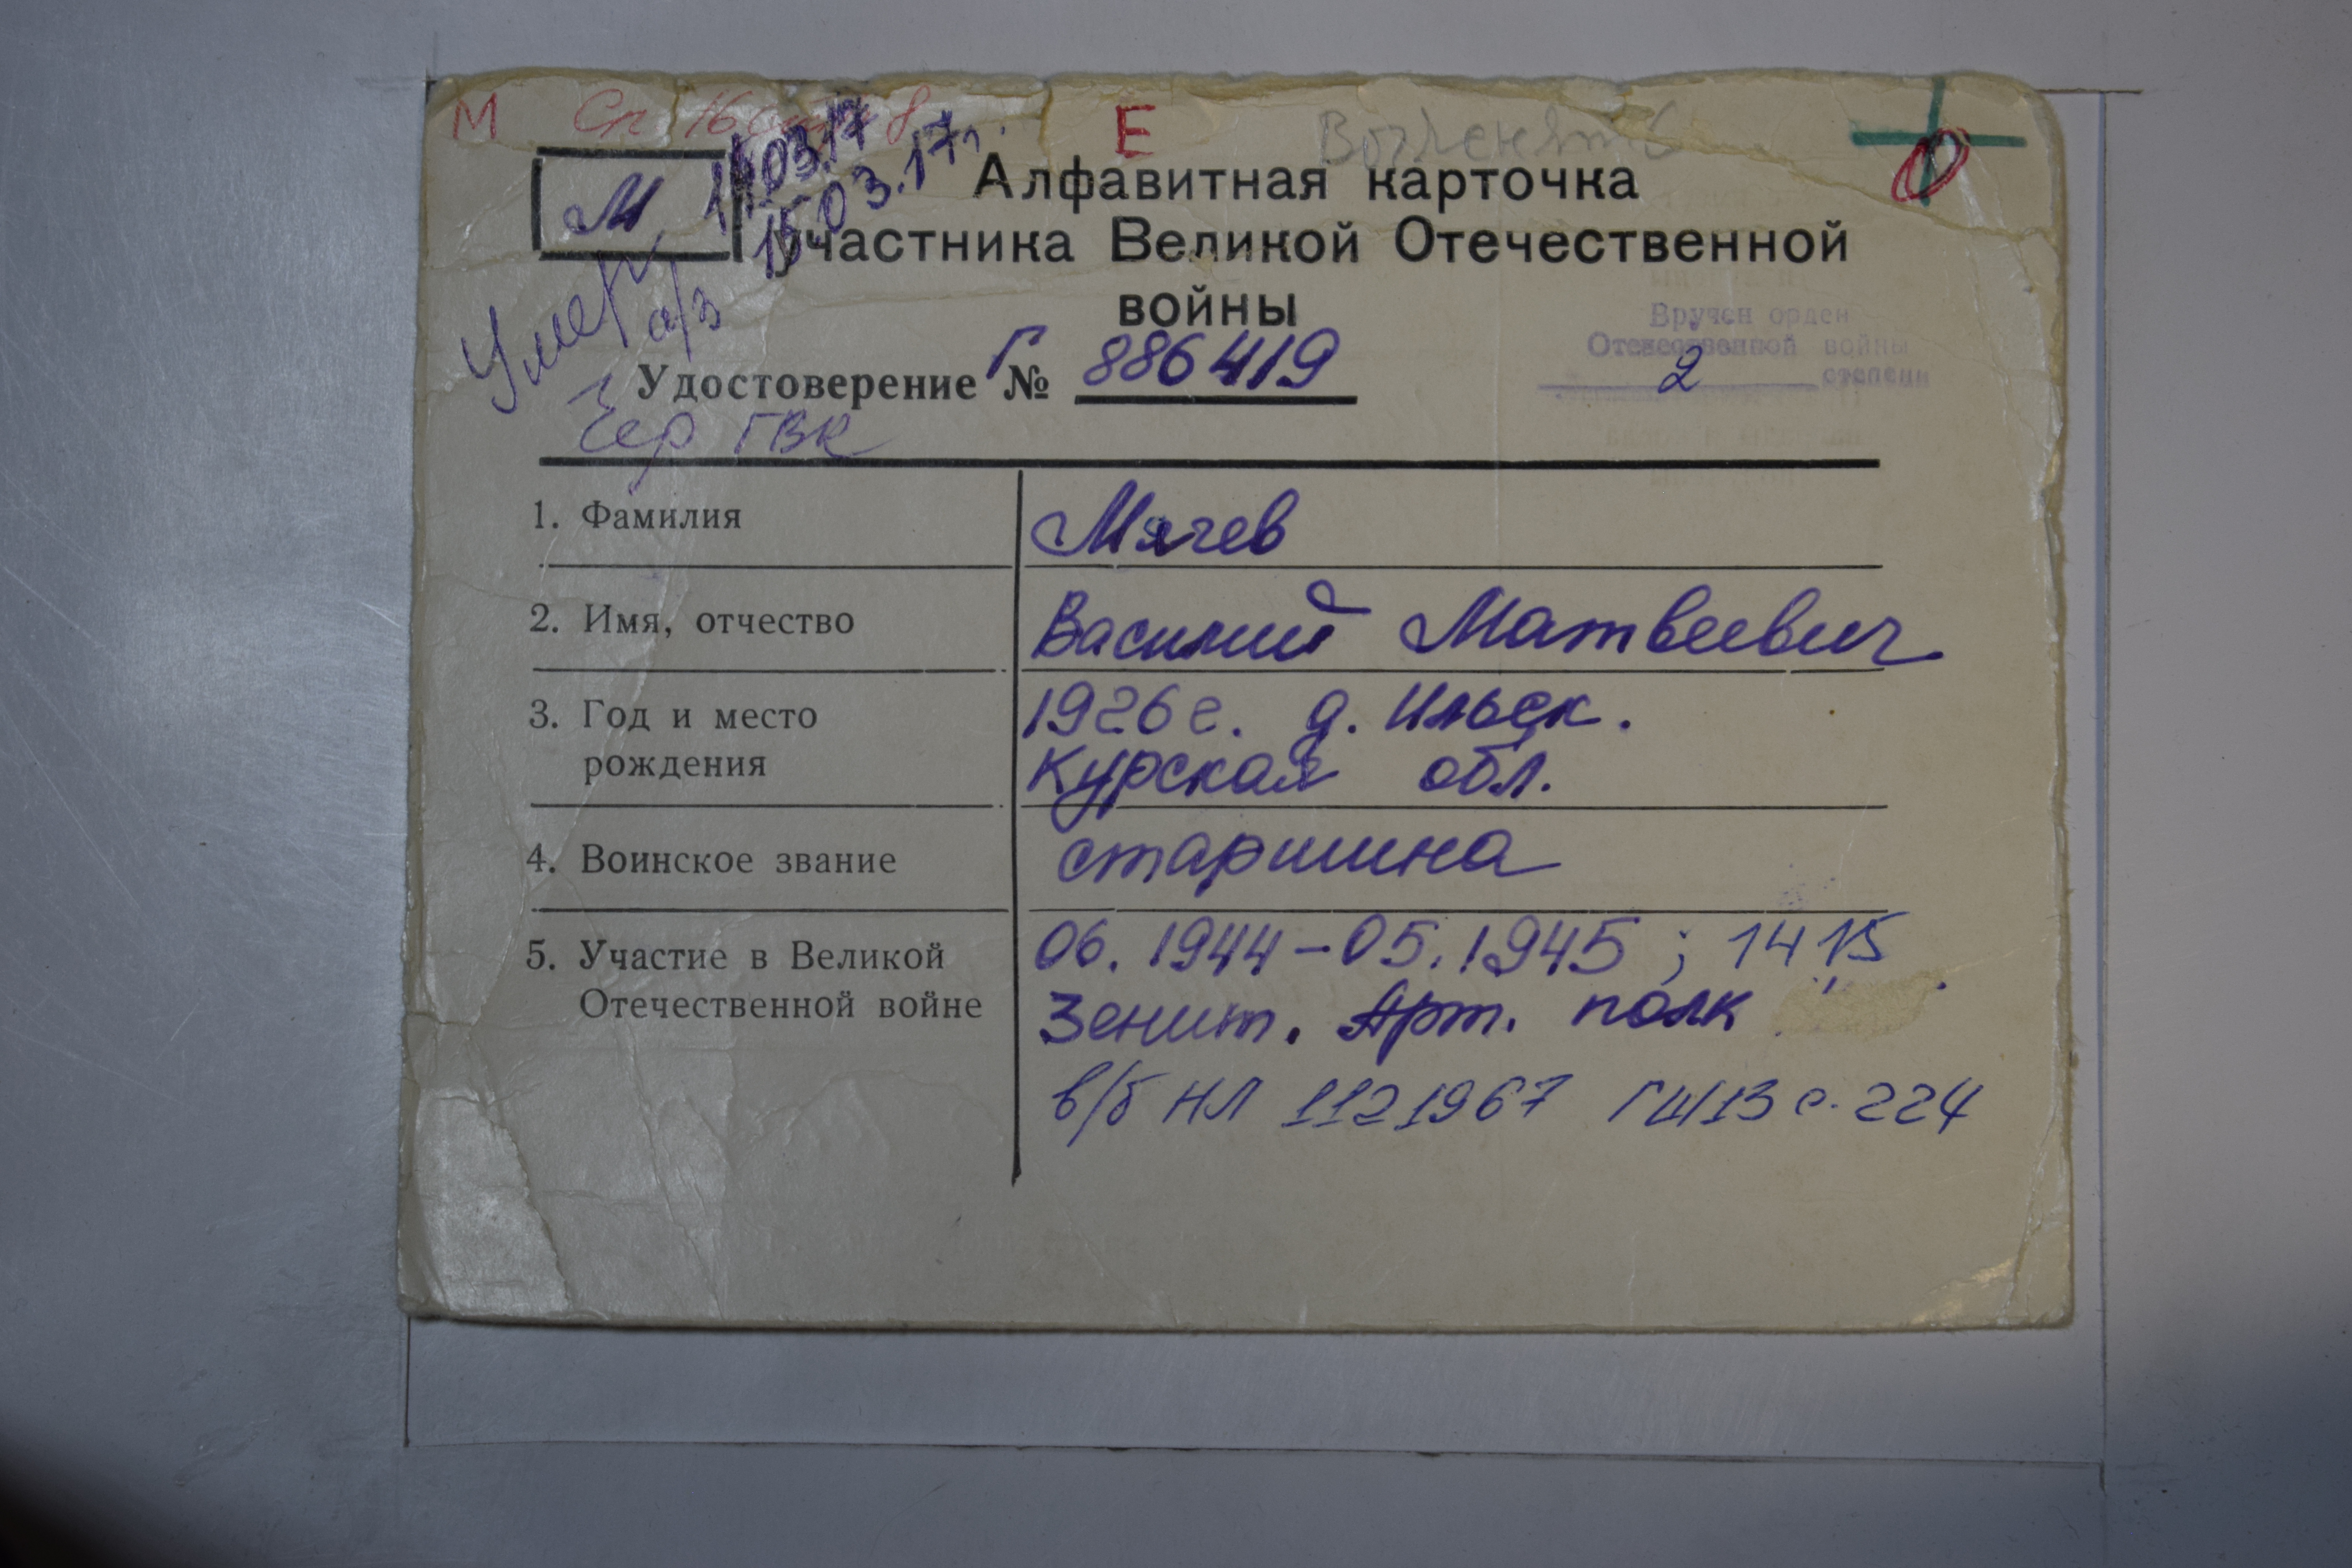 М Сп 16 8 Е
М 14.03.17
15.03.17г.
Алфавитная карточка
участника Великой Отечественной
войны
Умер
а/з
Удостоверение Г № 886419
Вручен орден
Отечественной войны
2 степени
Чер ГВК
1. Фамилия Мячев
2. Имя, отчество Василий Матвеевич
3. Год и место 1926 г. д. Ильек.
рождения Курская обл.
4. Воинское звание старшина
5. Участие в Великой 06. 1944 – 05. 1945 ; 1415
Отечественной войне Зенит. Арт. полк
в/б НЛ 1121967 ГШ/13 с. 224